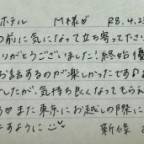 ホテル M様が R8.4.2
の前に気になって立ち寄ってださい
りがとうございました!終始優
お話するのが楽しかったです
したが、気持ち良くなってもらえ
♡また東京にお越しの際に
ますように
新條